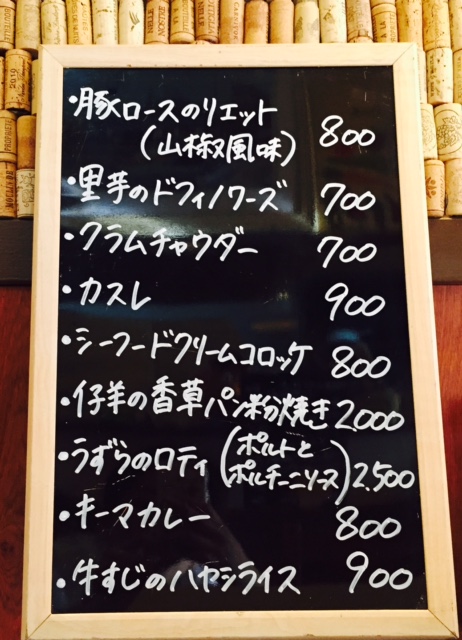 ・豚ロースのリエット
(山椒風味) 800
・里芋のドフィノワーズ 700
・クラムチャウダー 700
・カスレ 900
・シーフードクリームコロッケ 800
・仔羊の香草パン粉焼き 2000
・うずらのロティ (ポルトとポルチーニソース) 2,500
・キーマカレー 800
・牛すじのハヤシライス 900